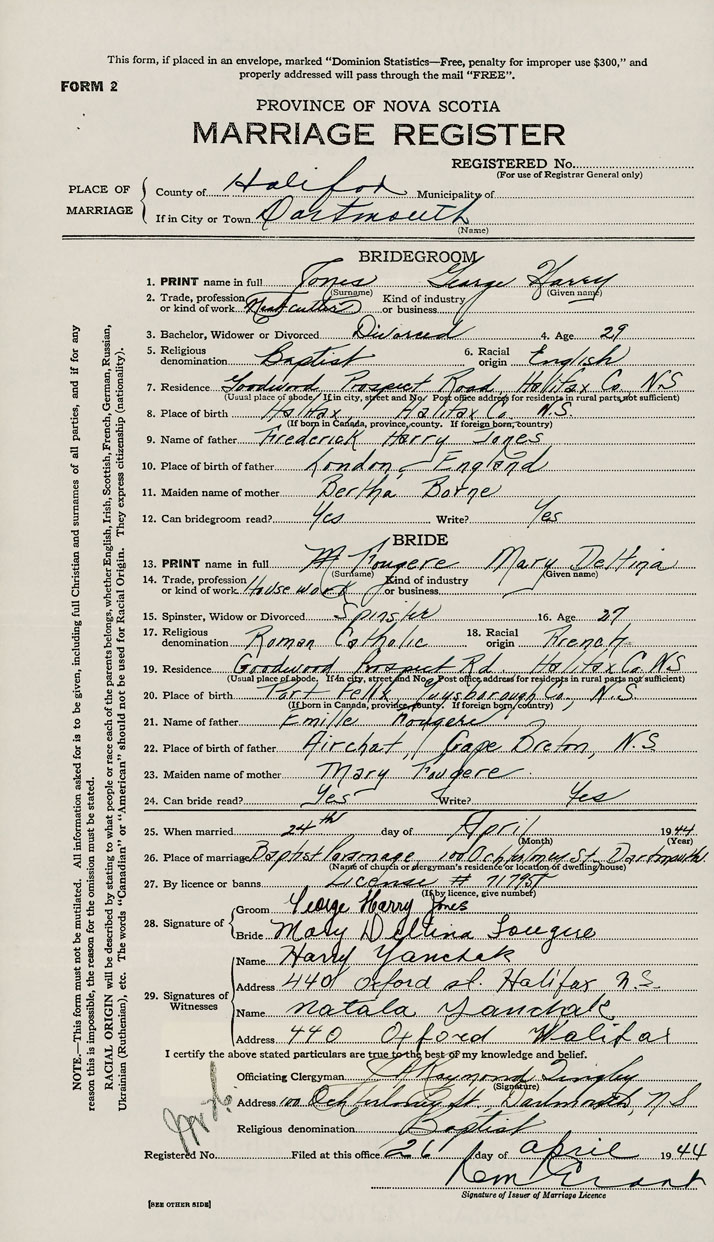 This form, if placed in an envelope, marked "Dominion Statistics—Free, penalty for improper use $300," and
properly addressed will pass through the mail "FREE".
FORM 2
PROVINCE OF NOVA SCOTIA
MARRIAGE REGISTER
REGISTERED No.
(For use of Registrar General only)
PLACE OF MARRIAGE
County of Halifax Municipality of
If in City or Town Dartmouth
(Name)
BRIDEGROOM
1. PRINT name in full Jones George Harry
(Surname) (Given name)
2. Trade, profession or kind of work Meat cutter Kind of industry or business
3. Bachelor, Widower or Divorced Divorced 4. Age 29
5. Religious denomination Baptist 6. Racial origin English
7. Residence Goodwood Prospect Road, Halifax Co. N.S
(Usual place of abode. If in city, street and No. Post office address for residents in rural parts not sufficient)
8. Place of birth Halifax, Halifax Co. N.S.
(If born in Canada, province, county. If foreign born, country)
9. Name of father Frederick Harry Jones
10. Place of birth of father London, England
11. Maiden name of mother Bertha Borne
12. Can bridegroom read? Yes Write? Yes
BRIDE
13. PRINT name in full Fougere Mary Delfina
(Surname) (Given name)
14. Trade, profession or kind of work House work Kind of industry or business
15. Spinster, Widow or Divorced Spinster 16. Age 27
17. Religious denomination Roman Catholic 18. Racial origin French
19. Residence Goodwood Prospect Rd. Halifax Co. N.S
(Usual place of abode. If in city, street and No. Post office address for residents in rural parts not sufficient)
20. Place of birth Port Felix, Guysborough Co., N.S.
(If born in Canada, province, county. If foreign born, country)
21. Name of father Emille Fougere
22. Place of birth of father Airchat, Cape Breton, N.S.
23. Maiden name of mother Mary Fougere
24. Can bride read? Yes Write? Yes
25. When married 24th day of April 1944
(Month) (Year)
26. Place of marriage Baptist Parsonage, 100 St. Dartmouth
(Name of church or clergyman's residence or location of dwelling house)
27. By licence or banns License #
(If by licence, give number)
28. Signature of
Groom George Harry Jones
Bride Mary Delfina Fougere
29. Signatures of Witnesses
Name Harry Yanchak
Address 440 Oxford st. Halifax N.S.
Name Natala Yanchak
Address 440 Oxford Halifax
I certify the above stated particulars are true to the best of my knowledge and belief.
Officiating Clergyman Raymond
(Signature)
Address 100 St Dartmouth, N S
Religious denomination Baptist
Registered No. Filed at this office 26 day of april 1944
Grant
Signature of Issuer of Marriage Licence
[SEE OTHER SIDE]
NOTE.—This form must not be mutilated. All information asked for is to be given, including full Christian and surnames of all parties, and if for any
reason this is impossible, the reason for the omission must be stated.
RACIAL ORIGIN will be described by stating to what people or race each of the parents belongs, whether English, Irish, Scottish, French, German, Russian,
Ukrainian (Ruthenian), etc. The words "Canadian" or "American" should not be used for Racial Origin. They express citizenship (nationality).